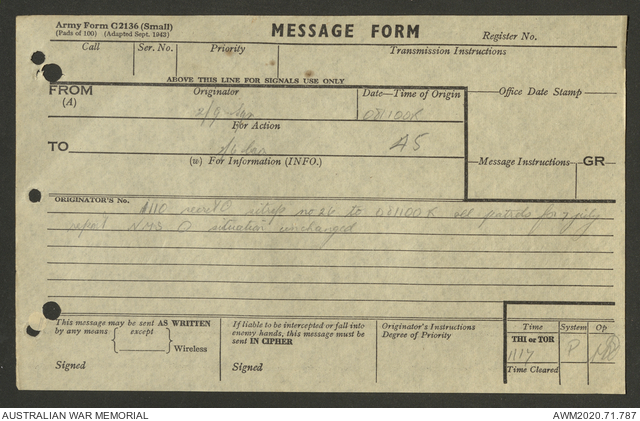 Army Form C2136 (Small)
(Pads of 100) (Adapted Sept. 1943)
MESSAGE FORM
Register No.
Call Ser. No. Priority Transmission Instructions
ABOVE THIS LINE FOR SIGNALS USE ONLY
FROM
(A)
Originator
Date—Time of Origin
Office Date Stamp
2/9
081100K
For Action
TO
45
(w) For Information (INFO.)
Message Instructions
GR
ORIGINATOR'S No.
sitrep no 26 to 081100K all patrols for 7 july
repeat O situation unchanged
This message may be sent AS WRITTEN
by any means except
Wireless
Signed
If liable to be intercepted or fall into
enemy hands, this message must be
sent IN CIPHER
Signed
Originator's Instructions
Degree of Priority
Time System Op
THI or TOR
1117 P
Time Cleared
AUSTRALIAN WAR MEMORIAL
AWM2020.71.787